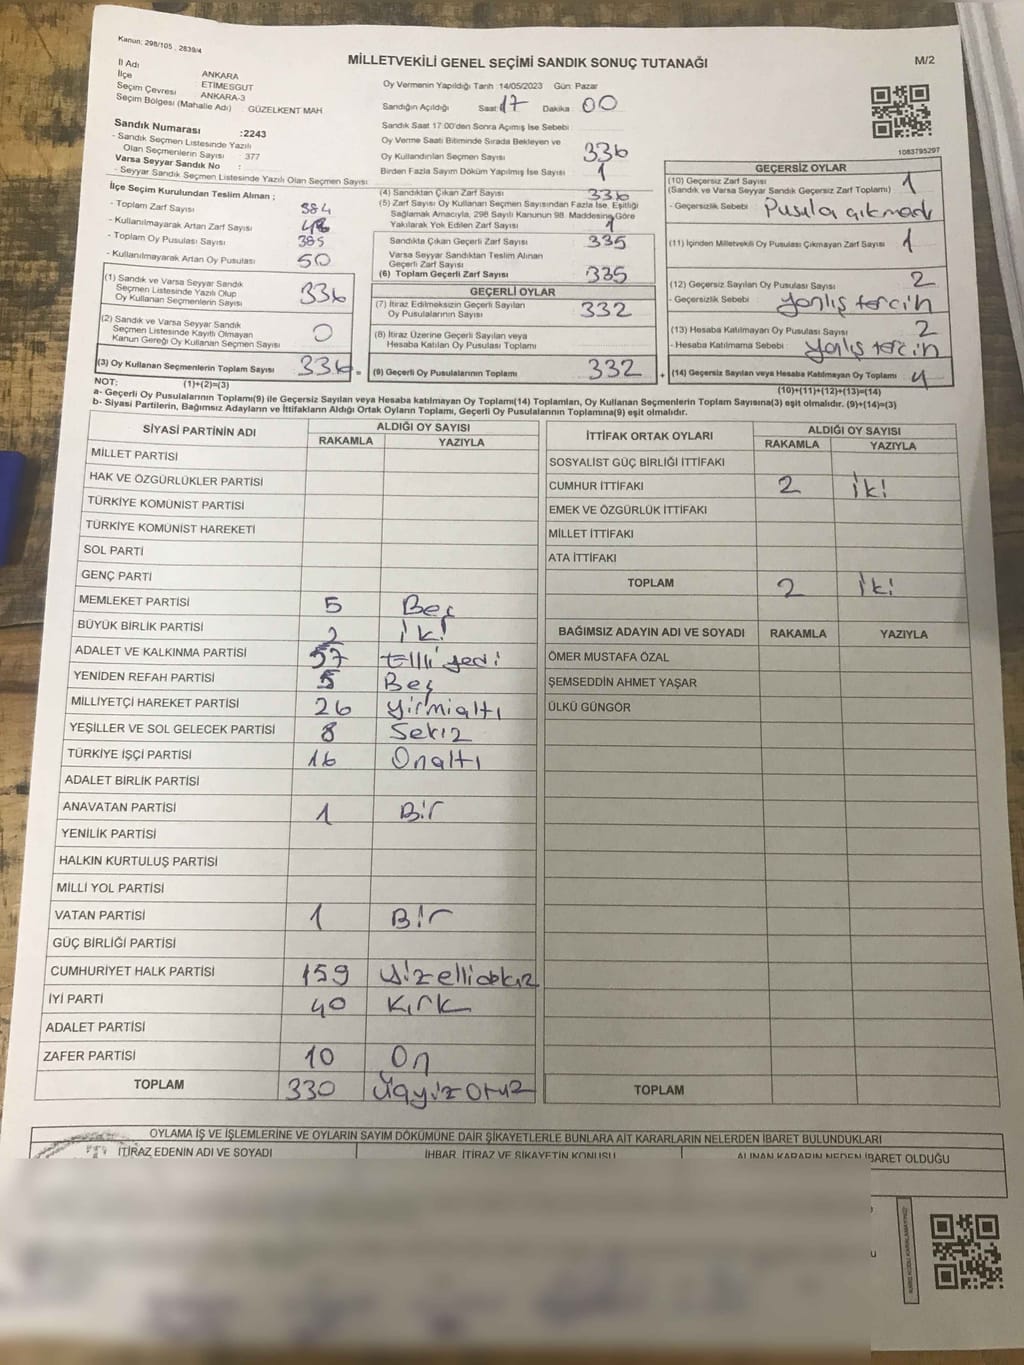 Kanun: 298/105 , 2839/4
MİLLETVEKİLİ GENEL SEÇİMİ SANDIK SONUÇ TUTANAĞI
M/2
İl Adı ANKARA
İlçe ETİMESGUT
Seçim Çevresi ANKARA-3
Seçim Bölgesi (Mahalle Adı) GÜZELKENT MAH
Sandık Numarası :2243
- Sandık Seçmen Listesinde Yazılı
Olan Seçmenlerin Sayısı : 377
Varsa Seyyar Sandık No :
- Seyyar Sandık Seçmen Listesinde Yazılı Olan Seçmen Sayısı:
İlçe Seçim Kurulundan Teslim Alınan ;
- Toplam Zarf Sayısı 384
- Kullanılmayarak Artan Zarf Sayısı 48
- Toplam Oy Pusulası Sayısı 385
- Kullanılmayarak Artan Oy Pusulası 50
(1) Sandık ve Varsa Seyyar Sandık
Seçmen Listesinde Yazılı Olup
Oy Kullanan Seçmenlerin Sayısı 336
(2) Sandık ve Varsa Seyyar Sandık
Seçmen Listesinde Kayıtlı Olmayan
Kanun Gereği Oy Kullanan Seçmen Sayısı 0
(3) Oy Kullanan Seçmenlerin Toplam Sayısı 336 =
Oy Vermenin Yapıldığı Tarih :14/05/2023 Gün: Pazar
Sandığın Açıldığı Saat 17 Dakika 00
Sandık Saat 17:00'den Sonra Açımış İse Sebebi
Oy Verme Saati Bitiminde Sırada Bekleyen ve
Oy Kullandırılan Seçmen Sayısı 336
Birden Fazla Sayım Döküm Yapılmış İse Sayısı 1
(4) Sandıktan Çıkan Zarf Sayısı 336
(5) Zarf Sayısı Oy Kullanan Seçmen Sayısından Fazla İse, Eşitliği
Sağlamak Amacıyla, 298 Sayılı Kanunun 98. Maddesine Göre
Yakılarak Yok Edilen Zarf Sayısı 1
Sandıkta Çıkan Geçerli Zarf Sayısı 335
Varsa Seyyar Sandıktan Teslim Alınan
Geçerli Zarf Sayısı
(6) Toplam Geçerli Zarf Sayısı 335
GEÇERLİ OYLAR
(7) İtiraz Edilmeksizin Geçerli Sayılan
Oy Pusulalarının Sayısı 332
(8) İtiraz Üzerine Geçerli Sayılan veya
Hesaba Katılan Oy Pusulası Toplamı
(9) Geçerli Oy Pusulalarının Toplamı 332 +
1083795297
GEÇERSİZ OYLAR
(10) Geçersiz Zarf Sayısı
(Sandık ve Varsa Seyyar Sandık Geçersiz Zarf Toplamı) 1
- Geçersizlik Sebebi Pusula çıkmadı
(11) İçinden Milletvekili Oy Pusulası Çıkmayan Zarf Sayısı 1
(12) Geçersiz Sayılan Oy Pusulası Sayısı 2
- Geçersizlik Sebebi yanlış tercih
(13) Hesaba Katılmayan Oy Pusulası Sayısı 2
- Hesaba Katılmama Sebebi yanlış tercih
(14) Geçersiz Sayılan veya Hesaba Katılmayan Oy Toplamı 4
NOT: (1)+(2)=(3)
(10)+(11)+(12)+(13)=(14)
a- Geçerli Oy Pusulalarının Toplamı(9) ile Geçersiz Sayılan veya Hesaba katılmayan Oy Toplamı(14) Toplamları, Oy Kullanan Seçmenlerin Toplam Sayısına(3) eşit olmalıdır. (9)+(14)=(3)
b- Siyasi Partilerin, Bağımsız Adayların ve İttifakların Aldığı Ortak Oyların Toplamı, Geçerli Oy Pusulalarının Toplamına(9) eşit olmalıdır.
SİYASİ PARTİNİN ADI ALDIĞI OY SAYISI
RAKAMLA YAZIYLA
MİLLET PARTİSİ
HAK VE ÖZGÜRLÜKLER PARTİSİ
TÜRKİYE KOMÜNİST PARTİSİ
TÜRKİYE KOMÜNİST HAREKETİ
SOL PARTİ
GENÇ PARTİ
MEMLEKET PARTİSİ 5 Beş
BÜYÜK BİRLİK PARTİSİ 2 iki
ADALET VE KALKINMA PARTİSİ 57 Elli yedi
YENİDEN REFAH PARTİSİ 5 Beş
MİLLİYETÇİ HAREKET PARTİSİ 26 yirmialtı
YEŞİLLER VE SOL GELECEK PARTİSİ 8 Sekiz
TÜRKİYE İŞÇİ PARTİSİ 16 Onaltı
ADALET BİRLİK PARTİSİ
ANAVATAN PARTİSİ 1 Bir
YENİLİK PARTİSİ
HALKIN KURTULUŞ PARTİSİ
MİLLİ YOL PARTİSİ
VATAN PARTİSİ 1 Bir
GÜÇ BİRLİĞİ PARTİSİ
CUMHURİYET HALK PARTİSİ 159
İYİ PARTİ 40 Kırk
ADALET PARTİSİ
ZAFER PARTİSİ 10 On
TOPLAM 330 Üçyüz Otuz
İTTİFAK ORTAK OYLARI ALDIĞI OY SAYISI
RAKAMLA YAZIYLA
SOSYALİST GÜÇ BİRLİĞİ İTTİFAKI
CUMHUR İTTİFAKI 2 iki
EMEK VE ÖZGÜRLÜK İTTİFAKI
MİLLET İTTİFAKI
ATA İTTİFAKI
TOPLAM 2 iki
BAĞIMSIZ ADAYIN ADI VE SOYADI RAKAMLA YAZIYLA
ÖMER MUSTAFA ÖZAL
ŞEMSEDDİN AHMET YAŞAR
ÜLKÜ GÜNGÖR
TOPLAM
OYLAMA İŞ VE İŞLEMLERİNE VE OYLARIN SAYIM DÖKÜMÜNE DAİR ŞİKAYETLERLE BUNLARA AİT KARARLARIN NELERDEN İBARET BULUNDUKLARI
İTİRAZ EDENİN ADI VE SOYADI İHBAR, İTİRAZ VE ŞİKAYETİN KONUSU ALINAN KARARIN NEDEN İBARET OLDUĞU